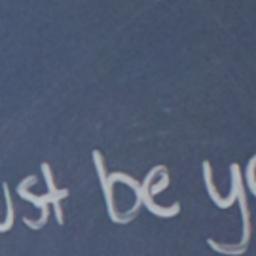 ust be yo